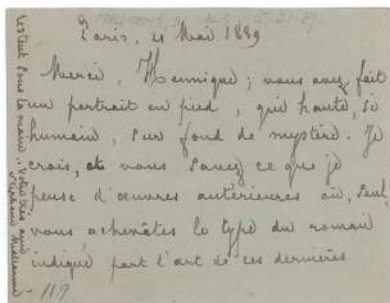 Paris, 21 Mai 1889
Merci, Hennique; vous avez fait
un portrait en pied, que haute, si
humain, sur fond de mystère. Je
crois, et vous savez ce que je
pense d'œuvres antérieures où, seul,
vous achevâtes le type du roman
indiqué part l'art de ces dernières
119
restent sous la main.. Votre très ami
Stéphane Mallarmé